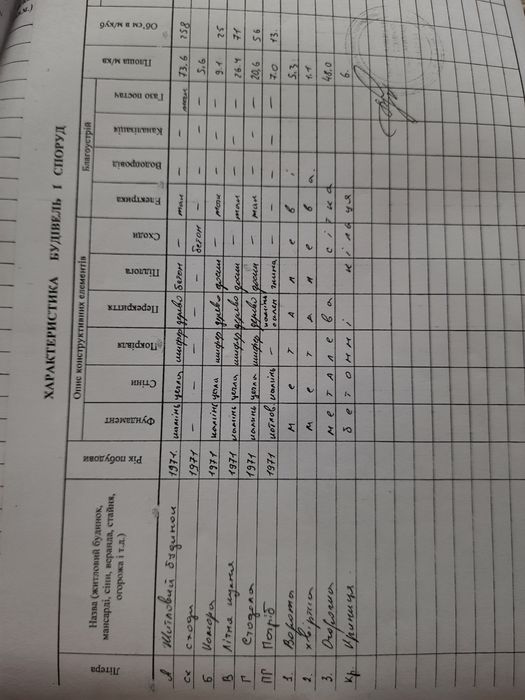 ХАРАКТЕРИСТИКА БУДІВЕЛЬ І СПОРУД
Літера Назва (житловий будинок, мансарді, сіни, веранда, стайня, огорожа і т.д.) Рік побудови Опис конструктивних елементів Благоустрій Площа м/кв Об'єм в м/куб
Фундамент Стіни Покрівля Перекриття Підлога Сходи Електрика Водопровід Каналізація Газо постач
А Житловий будинок 1971. камінь цегла шифер дерево бетон — так — — так 73,6 258
ск сходи 1971 — — — — — бетон — — — — 5,6
Б Комора 1971 камінь цегла шифер дерево дошки — так — — — 9.1 25
В Літна кухня 1971 камінь цегла шифер дерево дошки — так — — — 26.4 71
Г Стодола 1971 камінь цегла шифер дерево дошки — так — — — 20,6 56
ПГ Погріб 1971 котлов. камінь — камінь глина — — — — — 7.0 13.
1. Ворота металеві 5,3
2. хвіртка металева. 1.1
3. Огорожа металева сітка 48.0
Кр. Криниця бетонні кільця 6.